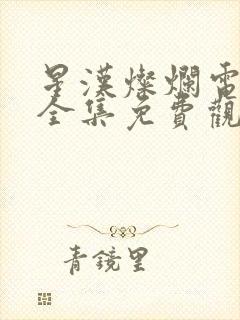 星漢燦爛電
全集免費觀
青鏡里